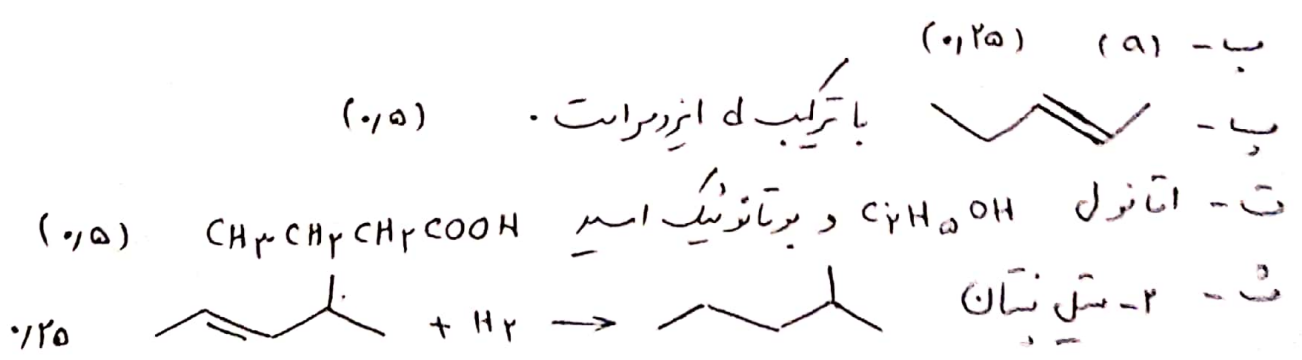 ب - (a) (۰٫۲۵)
پ - با ترکیب d ایزومر است. (۰٫۵)
ت - اتانول C۲H۵OH و بوتانوئیک اسید CH۳CH۲CH۲COOH (۰٫۵)
ث - ۲- متیل پنتان + H۲ → ۰/۲۵